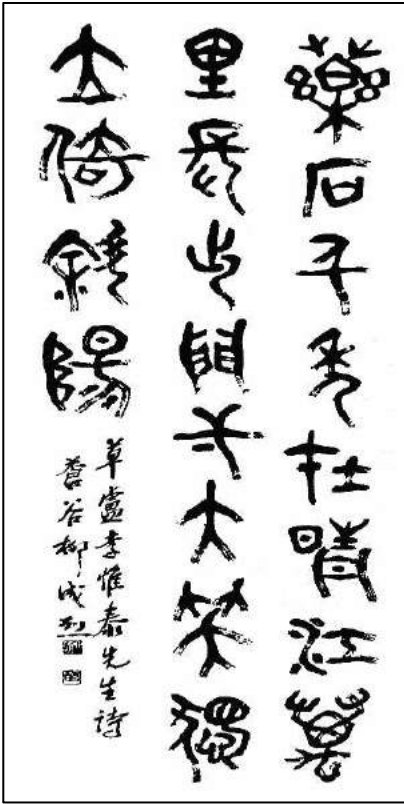 藥石千年在晴江萬
里長出門弌大笑獨
立倚斜陽
草廬李惟泰先生詩
谷柳成烈